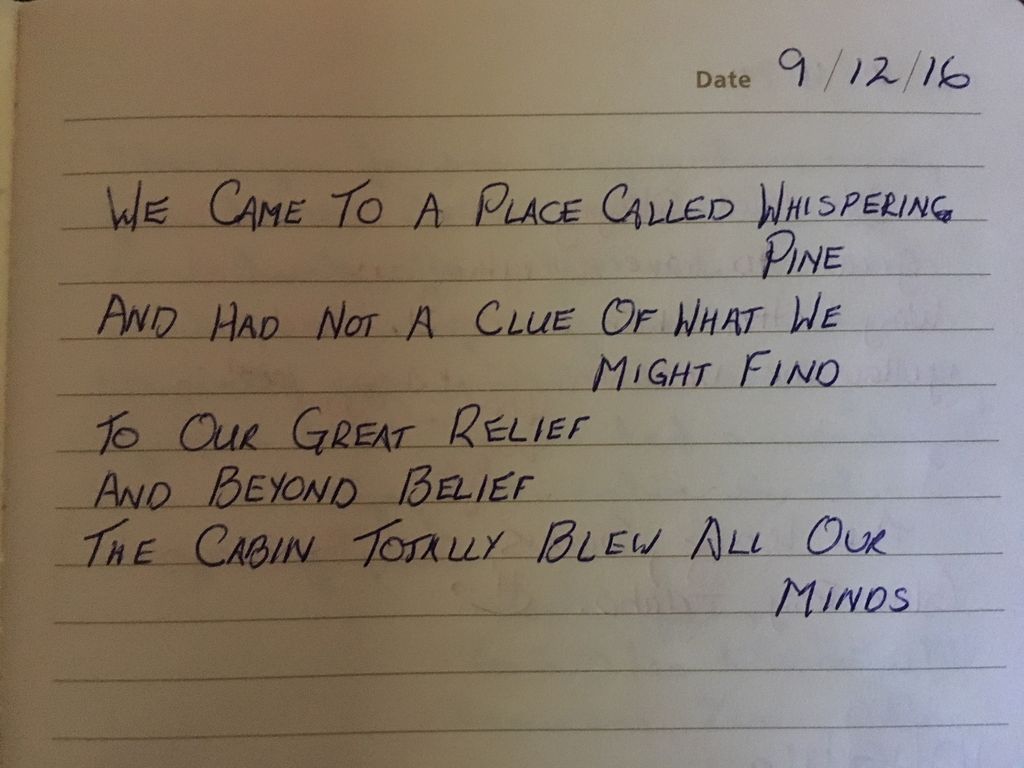 Date 9/12/16
WE CAME TO A PLACE CALLED WHISPERING
PINE
AND HAD NOT A CLUE OF WHAT WE
MIGHT FIND
TO OUR GREAT RELIEF
AND BEYOND BELIEF
THE CABIN TOTALLY BLEW ALL OUR
MINDS